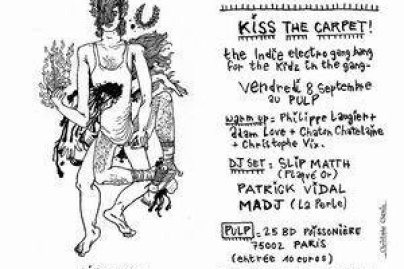 KISS THE CARPET!
the Indie electro gang bang
for the Kidz in the gang-
Vendredi 8 Septembre
au PULP
warm up = Philippe Laugier +
adam Love + Chaton Chatelaine
+ Christophe Vix.
DJ SET = SLIP MATTH
(Plaqué Or)
PATRICK VIDAL
MADJ (La Perle)
PULP = 25 BD POISSONIÈRE
75002 PARIS
(entrée 10 euros)